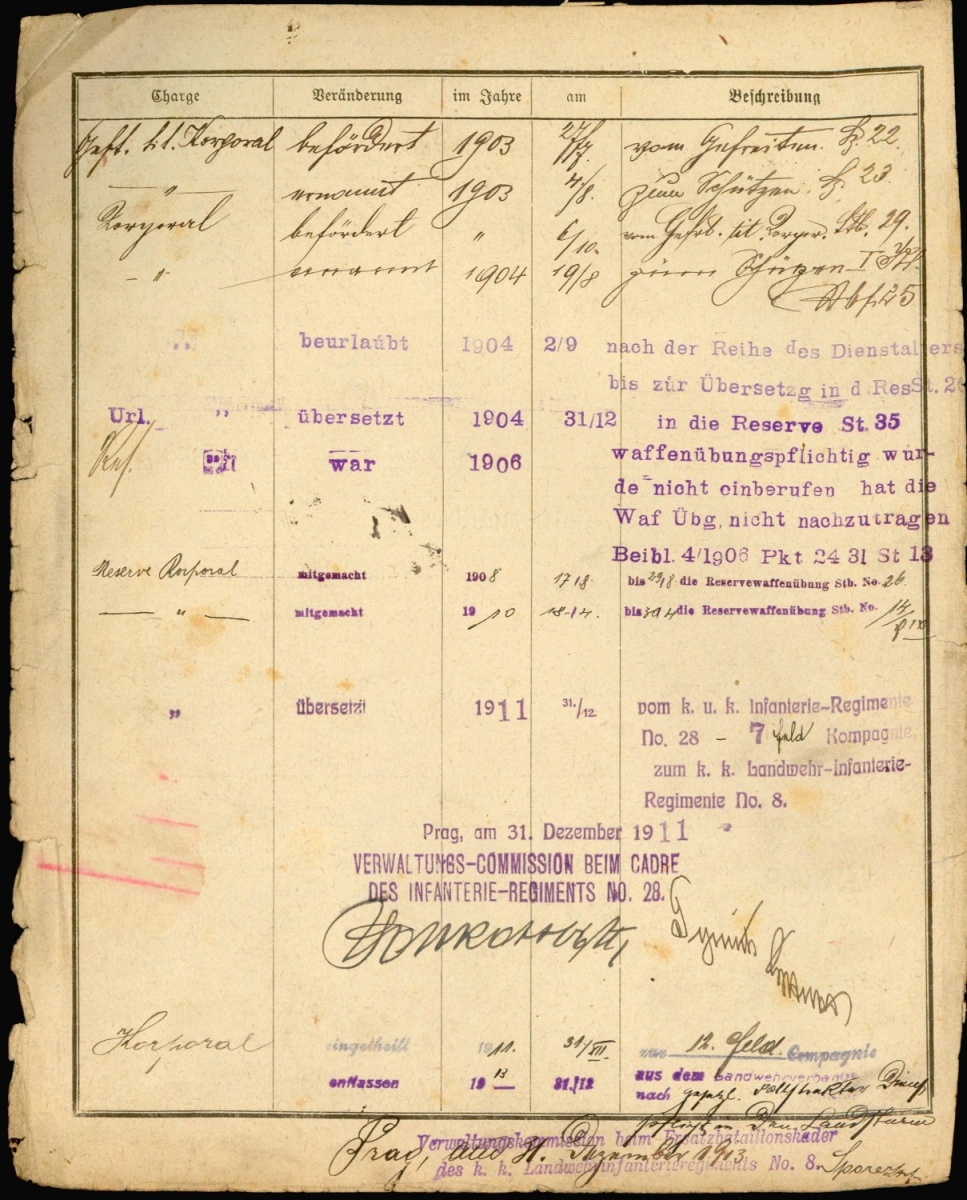 Charge Veränderung im Jahre am Beschreibung
Gefr. tit. Korporal befördert 1903 vom Gefreiten. 22.
" ernannt 1903 4/8. zum Schützen. 23
Korporal befördert " 6/10. vom Gefr. tit. Korpor. Stb. 29.
" ernannt 1904 19/8 zum Schützen I
25
" beurlaubt 1904 2/9 nach der Reihe des Dienstalters
bis zur Übersetzg in d. Res St. 2
Url. " übersetzt 1904 31/12 in die Reserve St. 35
Res. " war 1906 waffenübungspflichtig wur-
de nicht einberufen hat die
Waf Übg, nicht nachzutragen
Beibl. 4/1906 Pkt 24 31 St 13
Reserve Korporal mitgemacht 1908 17/8. bis 29/8. die Reservewaffenübung Stb. No. 26.
" mitgemacht 1910 18/4. bis 30/4 die Reservewaffenübung Stb. No. 14/
" übersetzt 1911 31./12. vom k. u. k. Infanterie-Regimente
No. 28 - 7 feld Kompagnie,
zum k. k. Landwehr-Infanterie-
Regimente No. 8.
Prag, am 31. Dezember 1911
VERWALTUNGS-COMMISSION BEIM CADRE
DES INFANTERIE-REGIMENTS NO. 28.
Korporal eingetheilt 1911. 31/XII. zur 12. Feld. Compagnie
entlassen 1913 31./12 aus dem Landwehrverbande
nach gesetzl. vollstreckter Dienst
pflicht in den Landsturm
Verwaltungskommission beim Ersatzbataillonskader
Prag, am 31. Dezember 1913
des k. k. Landwehrinfanterieregiments No. 8.